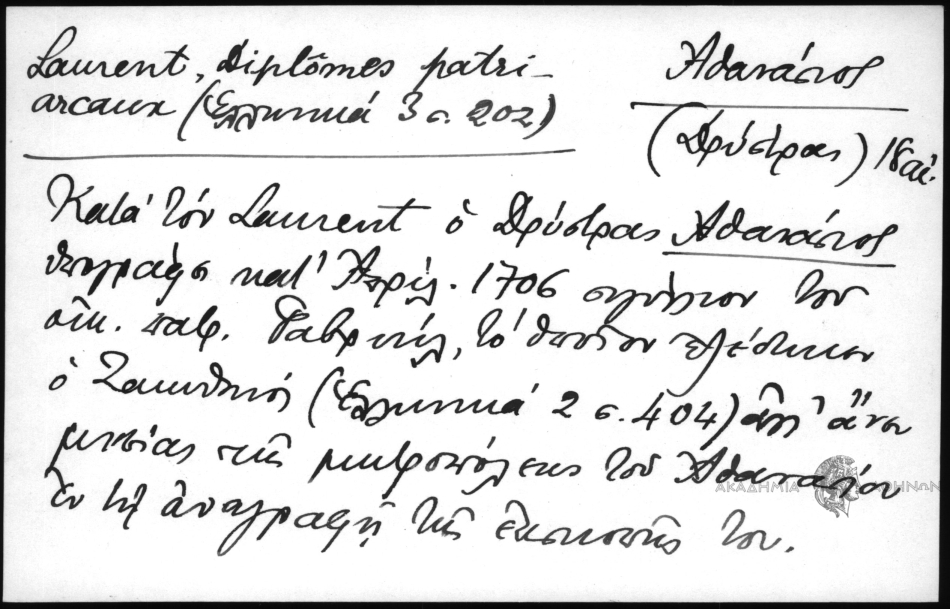 Laurent, Diplômes patri-
arcaux (Ἑλληνικά 3 σ. 202)
Ἀθανάσιος
(Δρύστρας) 18 αἰ.
Κατά τόν Laurent ὁ Δρύστρας Ἀθανάσιος
ὑπογράφει κατ' Ἀπρίλ. 1706 σιγίλλιον τοῦ
οἰκ. πατρ. Γαβριήλ, τό ὁποῖον ἐξέδωκεν
ὁ Ζακυθηνός (Ἑλληνικά 2 σ. 404) ἀλλ' ἄνευ
μνείας τῆς μητροπόλεως τοῦ Ἀθανασίου
ἐν τῇ ἀναγραφῇ τῆς ἐκσκοπῆς του.
ΑΚΑΔΗΜΙΑ ΑΘΗΝΩΝ